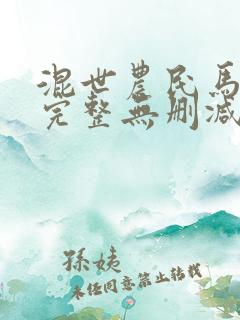 混世農民馬
完整無刪減
孫姨
未任同意禁止轉載